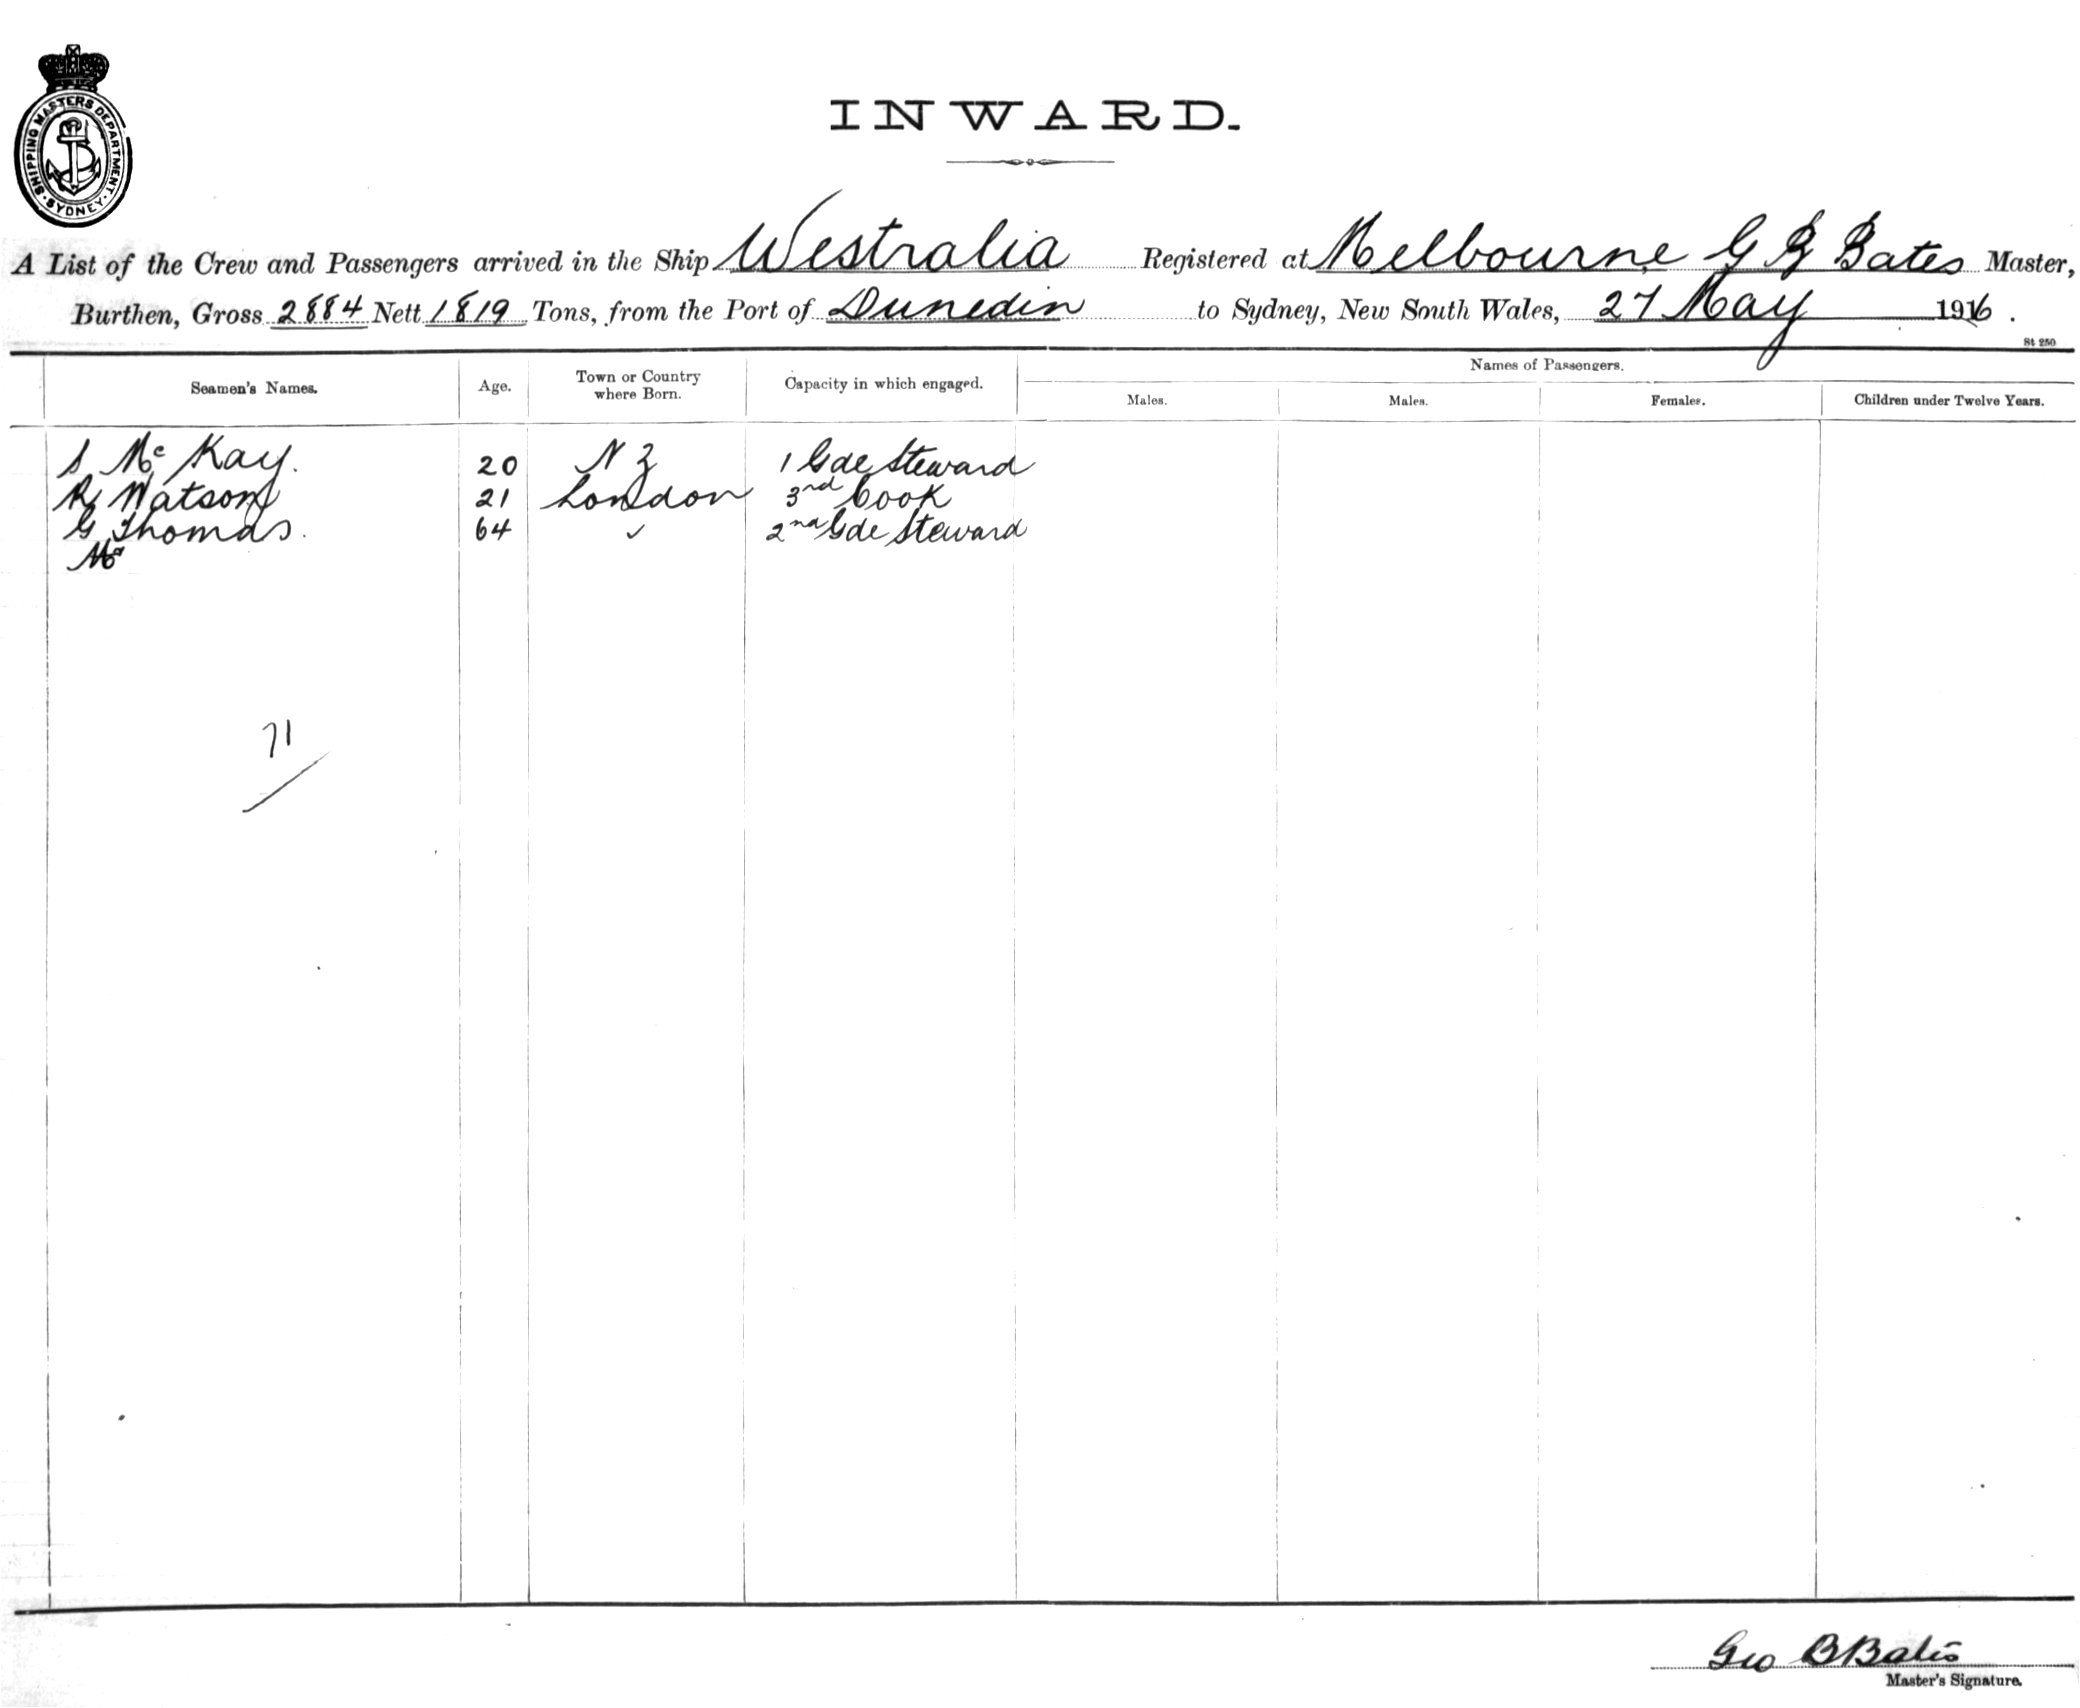 SHIPPING MASTERS DEPARTMENT
SYDNEY
INWARD.
A List of the Crew and Passengers arrived in the Ship Westralia Registered at Melbourne G B Bates Master,
Burthen, Gross 2884 Nett 1819 Tons, from the Port of Dunedin to Sydney, New South Wales, 27 May 1916.
St 250
Seamen's Names. Age. Town or Country where Born. Capacity in which engaged. Names of Passengers.
Males. Males. Females. Children under Twelve Years.
S Mc Kay. 20 N Z 1 Gde Steward
R Watson 21 London 3rd Cook
G Thomas. 64 ✓ 2nd Gde Steward
Mc
71
Geo B Bates
Master's Signature.